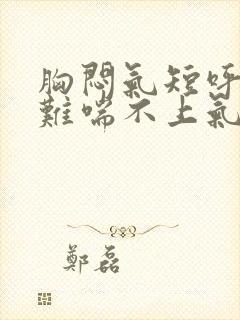 胸悶氣短呼
難喘不上氣
鄭磊